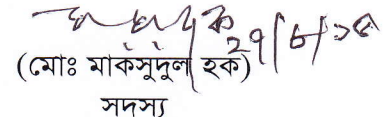 ২৭/৮/১৫
(মোঃ মাকসুদুল হক)
সদস্য